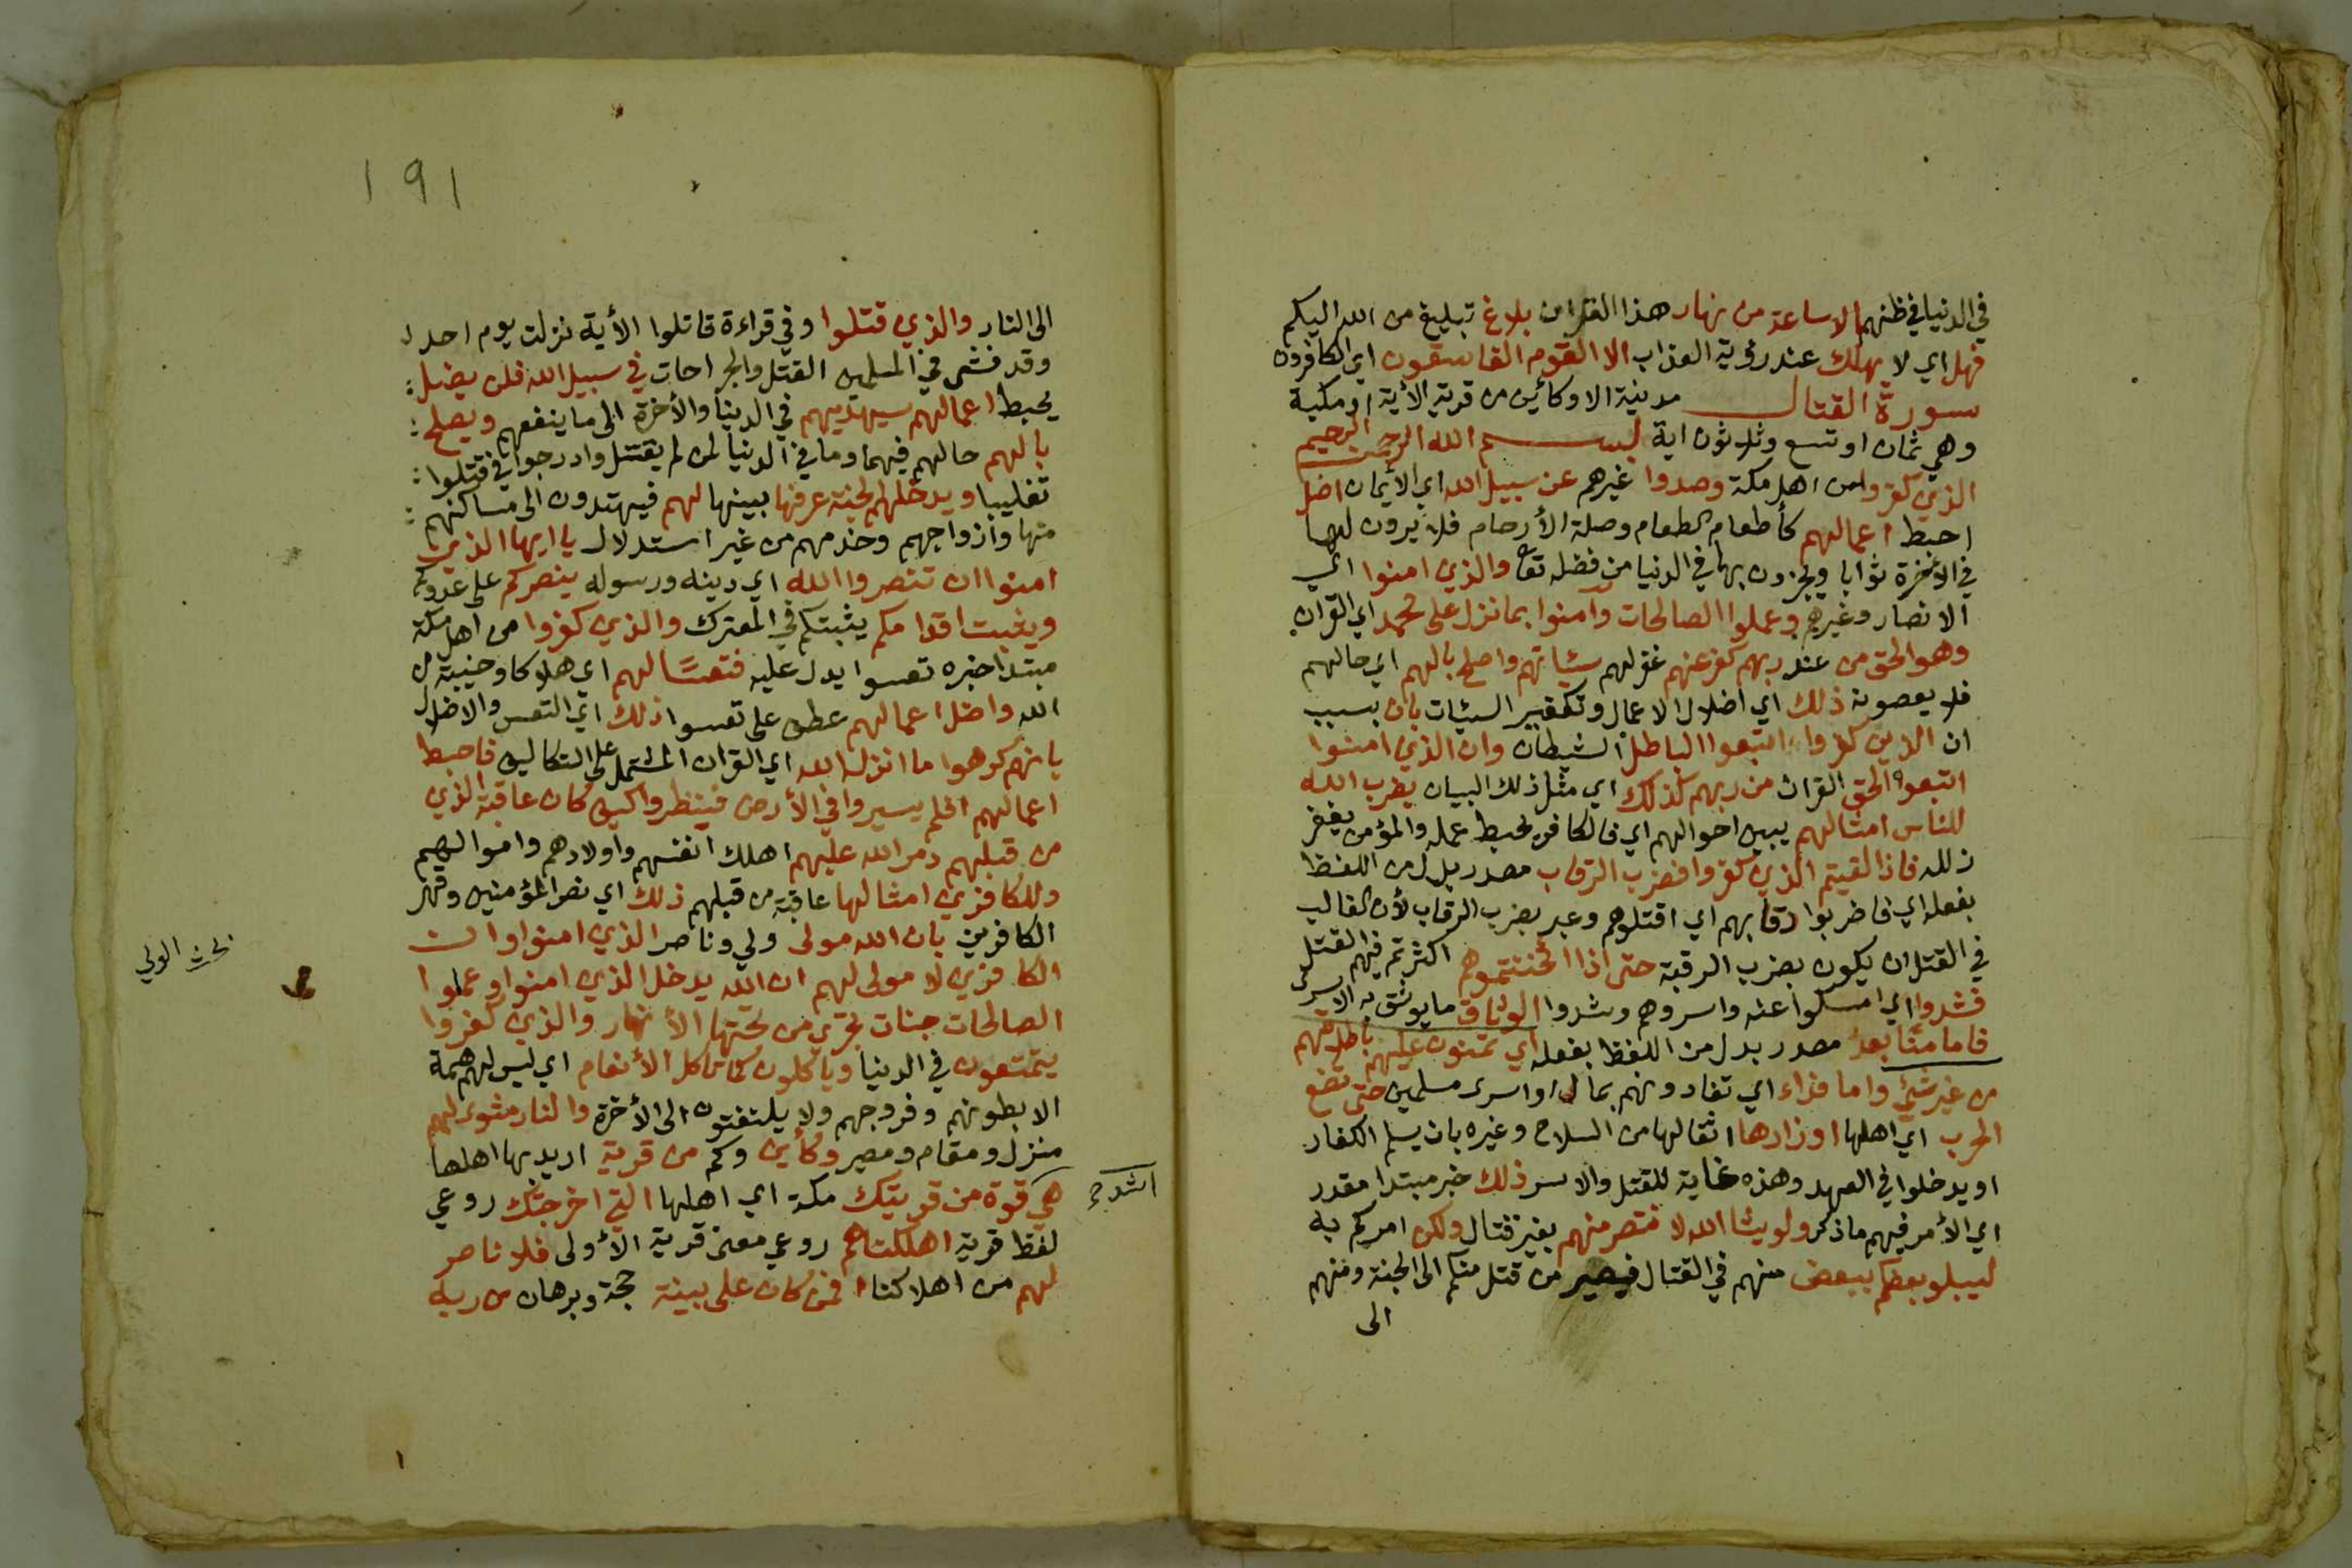 في الدنيا في ظنهم الا ساعة من نهار هذا القران بلاغ تبليغ من الله اليكم
فهل اي لا يهلك عند رؤية العذاب الا القوم الفاسقون اي الكافرون
سورة القتال مدنية الا وكأين من قرية الأية او مكية
وهي ثمان او تسع وثلاثون اية بسم الله الرحمن الرحيم
الذي كفروا من اهل مكة وصدوا غيرهم عن سبيل الله اي الأيمان اضل
احبط اعمالهم كأطعام الطعام وصلة الأرحام فلا يرون لها
في الأخرة ثوابا ويجزون بها في الدنيا من فضله تعا والذي امنوا اي
الانصار وغيرهم وعملوا الصالحات وآمنوا بما نزل على محمد اي القران
وهو الحق من عند ربهم كفر عنهم غفر لهم سيئاتهم واصلح بالهم اي حالهم
فلا يعصونه ذلك اي اضلال الاعمال وتكفير السيئات بان بسبب
ان الذين كفروا اتبعوا الباطل الشيطان وان الذي امنوا
اتبعوا الحق القران من ربهم كذلك اي مثل ذلك البيان يضرب الله
للناس امثالهم يبين احوالهم اي فالكافر يحبط عمله والمؤمن يغفر
زلله فاذا لقيتم الذي كفروا فضرب الرقاب مصدر بدل من اللفظ
بفعله اي فاضربوا رقابهم اي اقتلوهم وعبر بضرب الرقاب لأن الغالب
في القتل ان يكون بضرب الرقبة حتى اذا اثخنتموهم اكثرتم فيهم القتل
فشدوا اي امسكوا عنه واسروهم وشدوا الوثاق ما يوثق به الاسرى
فاما منّا بعدُ مصدر بدل من اللفظ بفعله اي تمنون عليهم باطلاقهم
من غير شئ واما فداء اي تفادونهم بمال او اسرى مسلمين حتى تضع
الحرب اي اهلها اوزارها اثقالها من السلاح وغيره بان يسلم الكفار
او يدخلوا في العهد وهذه غاية للقتل والاسر ذلك خبر مبتدا مقدر
اي الأمر فيهم ما ذكر ولو يشا الله لانتصر منهم بغير قتال ولكن امركم به
ليبلو بعضكم ببعض منهم في القتال فيصير من قتل منكم الى الجنة ومنهم
الى
191
الى النار والذي قتلوا وفي قراءة قاتلوا الأية نزلت يوم احد
وقد فشى في المسلمين القتل والجراحات في سبيل الله فلن يضل
يحبط اعمالهم سيهديهم في الدنيا والأخرة الى ما ينفعهم ويصلح
بالهم حالهم فيهما وما في الدنيا لمن لم يقتل وادرجوا في قتلوا
تغليبا ويدخلهم الجنة عرفها بينها لهم فيهتدون الى مساكنهم
منها وازواجهم وخدمهم من غير استدلال يا ايها الذين
امنوا ان تنصروا الله اي دينه ورسوله ينصركم على عدوكم
ويثبت اقدامكم يثبتكم في المعترك والذي كفروا من اهل مكة
مبتدا خبره تعسوا يدل عليه فتعسًا لهم اي هلاكا وخيبة من
الله واضل اعمالهم عطف على تعسوا ذلك اي التعس والاضلال
بانهم كرهوا ما انزل الله اي القران المشتمل على التكاليف فاحبط
اعمالهم افلم يسيروا في الأرض فينظروا كيف كان عاقبة الذي
من قبلهم دمر الله عليهم اهلك انفسهم واولادهم واموالهم
وللكافرين امثالها عاقبة من قبلهم ذلك اي نصر المؤمنين وقهر
الكافرين بان الله مولى ولي وناصر الذي امنوا وان
الكافرين لا مولى لهم ان الله يدخل الذي امنوا وعملوا
الصالحات جنات تجري من تحتها الأنهار والذي كفروا
يتمتعون في الدنيا وياكلون كما تاكل الأنعام اي ليس لهم همة
الا بطونهم وفروجهم ولا يلتفتون الى الأخرة والنار مثوى لهم
منزل ومقام ومصير وكأين وكم من قرية اريد بها اهلها
هي قوة من قريتك مكة اي اهلها التي اخرجتك روعي
لفظ قرية اهلكناهم روعي معنى قرية الأولى فلا ناصر
لهم من اهلاكنا افمن كان على بينة حجة وبرهان من ربه
اشد
الولي